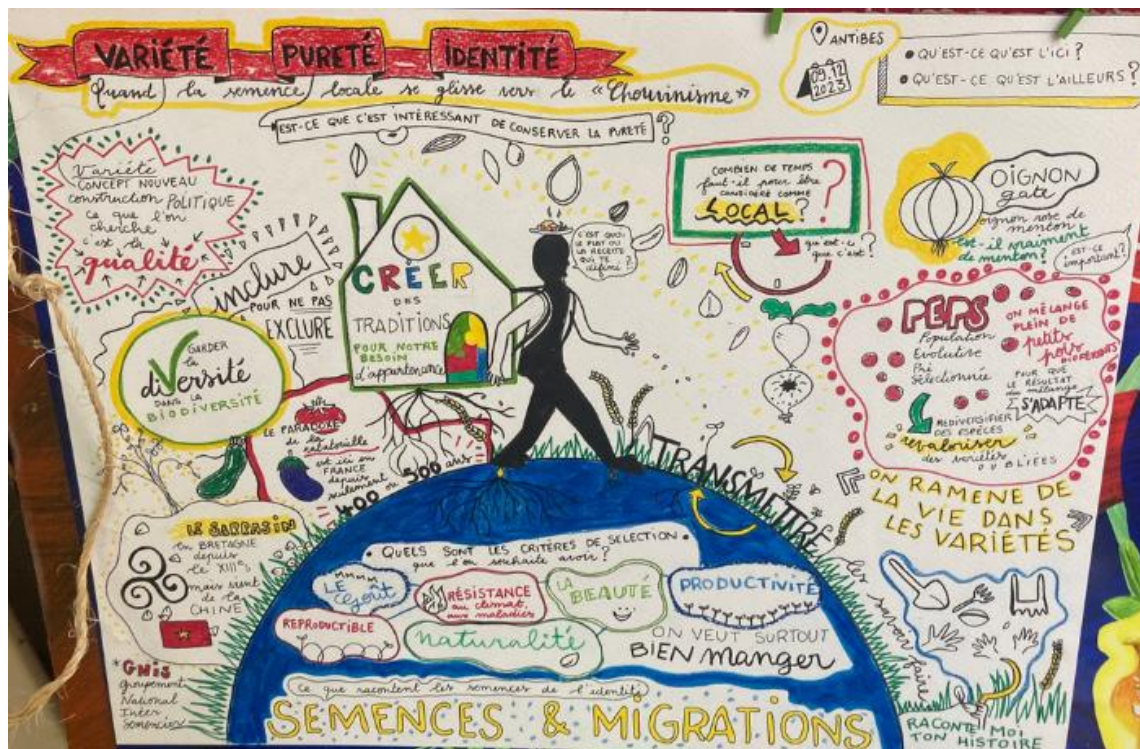 VARIÉTÉ PURETÉ IDENTITÉ
Quand la semence locale se glisse vers le « Chouvinisme »
EST-CE QUE C'EST INTÉRESSANT DE CONSERVER LA PURETÉ ?
ANTIBES
09.12
2023
• QU'EST-CE QU'EST L'ICI ?
• QU'EST-CE QU'EST L'AILLEURS ?
Variété
CONCEPT NOUVEAU
construction POLITIQUE
ce que l'on
cherche
c'est la
qualité
inclure
POUR NE PAS
EXCLURE
GARDER
la
diversité
DANS LA
BIODIVERSITÉ
CRÉER
DES
TRADITIONS
POUR NOTRE
BESOIN
d'appartenance
C'EST QUOI
LE PLAT OU
LA RECETTE
QUI TE
défini ?
COMBIEN DE TEMPS
faut-il pour être
CONSIDÉRÉ COMME
LOCAL ?
qu'est-ce
que c'est ?
OIGNON
gate
oignon rose de
menton
est-il vraiment
de menton ?
EST-CE
important ?
PEPS
Population
Evolutive
Pré
Sélectionnée
ON MÉLANGE
PLEIN DE
petits
pois
DIFFÉRENTS
POUR QUE
LE RÉSULTAT
du mélange
S'ADAPTE
REDIVERSIFIER
DES ESPÈCES
revaloriser
des variétés
OUBLIÉES
« ON RAMENE DE
LA VIE DANS
LES VARIÉTÉS »
LE PARADOXE
de la
ratatouille
est ici en
FRANCE
depuis
seulement
400 ou 500 ans
TRANSMETTRE
les
savoir faire
LE SARRASIN
en BRETAGNE
depuis
le XIIIes
mais vient
de la
CHINE
*GNIS
Groupement
National
Inter
Semencier
• QUELS SONT LES CRITÈRES DE SELECTION •
que l'on souhaite avoir ?
LE
goût
RÉSISTANCE
au climat,
aux maladies
LA
BEAUTÉ
PRODUCTIVITÉ
REPRODUCTIBLE
naturalité
ON VEUT SURTOUT
BIEN manger
Ce que racontent les semences de l'identité
SEMENCES & MIGRATIONS
RACONTE MOI
TON HISTOIRE